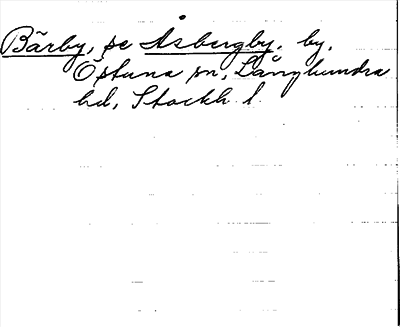 Bärby, se Åsbergby. by.
Östuna sn, Långhundra
hd, Stockh l.